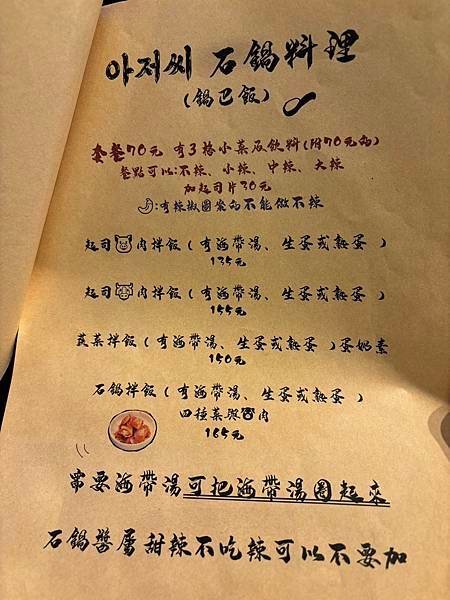 아저씨 石鍋料理
(鍋巴飯)
套餐70元 有3格小菜及飲料(附70元的)
餐點可以:不辣、小辣、中辣、大辣
加起司片30元
:有辣椒圖案的不能做不辣
起司肉拌飯(有海帶湯、生蛋或熟蛋)
135元
起司肉拌飯(有海帶湯、生蛋或熟蛋)
155元
蔬菜拌飯(有海帶湯、生蛋或熟蛋)蛋奶素
150元
石鍋拌飯(有海帶湯、生蛋或熟蛋)
四種菜與肉
165元
需要海帶湯可把海帶湯圈起來
石鍋醬屬甜辣不吃辣可以不要加